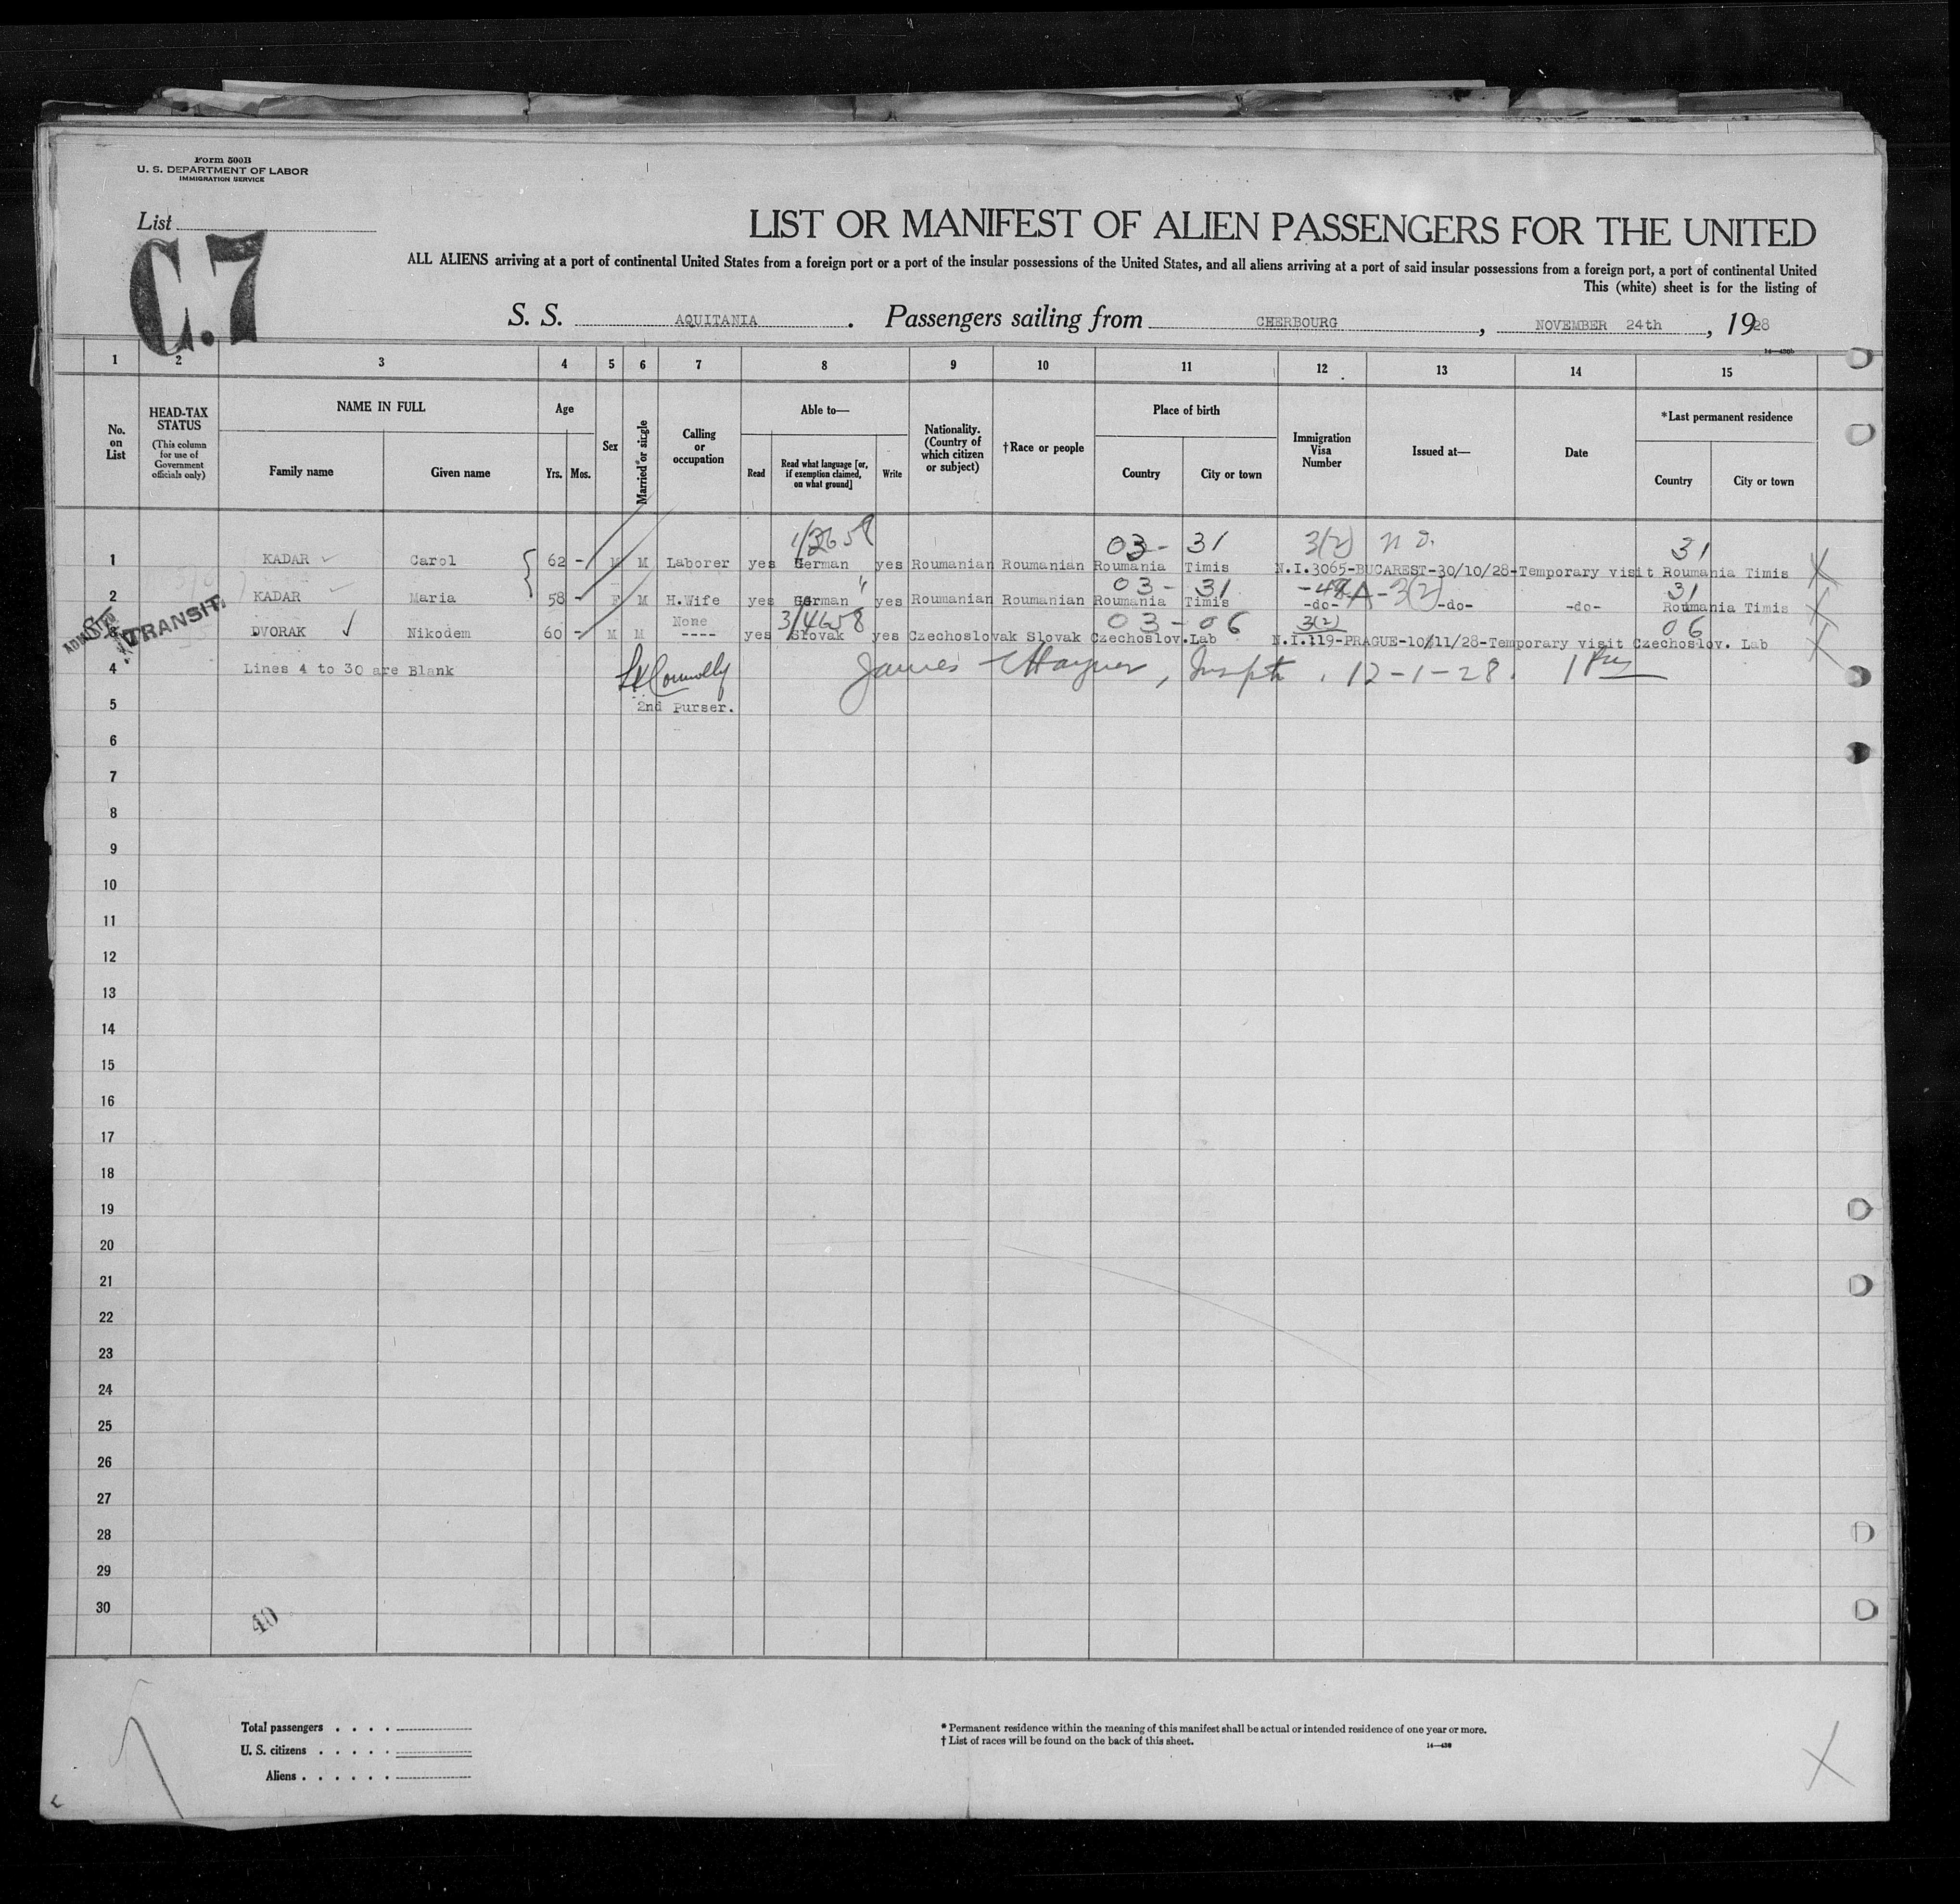 Form 500B
U. S. DEPARTMENT OF LABOR
IMMIGRATION SERVICE
List
C.7
LIST OR MANIFEST OF ALIEN PASSENGERS FOR THE UNITED
ALL ALIENS arriving at a port of continental United States from a foreign port or a port of the insular possessions of the United States, and all aliens arriving at a port of said insular possessions from a foreign port, a port of continental United
This (white) sheet is for the listing of
S. S. AQUITANIA. Passengers sailing from CHERBOURG, NOVEMBER 24th, 1928
14—430b
1 2 3 4 5 6 7 8 9 10 11 12 13 14 15
No. on List
HEAD-TAX STATUS
(This column for use of Government officials only)
NAME IN FULL
Family name Given name
Age
Yrs. Mos.
Sex
Married or single
Calling or occupation
Able to—
Read Read what language [or, if exemption claimed, on what ground] Write
Nationality. (Country of which citizen or subject)
†Race or people
Place of birth
Country City or town
Immigration Visa Number
Issued at—
Date
*Last permanent residence
Country City or town
03 - 31 3(2) 31
1 KADAR Carol 62 - M M Laborer yes German yes Roumanian Roumanian Roumania Timis N.I.3065-BUCAREST-30/10/28-Temporary visit Roumania Timis
03 - 31 3(2) 31
2 KADAR Maria 58 - F M H.Wife yes German yes Roumanian Roumanian Roumania Timis -do- -do- -do- Roumania Timis
ADMITTED
IN TRANSIT.
None 3/4658 03 - 06 3(2) 06
3 DVORAK Nikodem 60 - M M ---- yes Slovak yes Czechoslovak Slovak Czechoslov. Lab N.I.119-PRAGUE-10/11/28-Temporary visit Czechoslov. Lab
4 Lines 4 to 30 are Blank Connolly James, Inspt. 12-1-28.
5 2nd Purser.
6
7
8
9
10
11
12
13
14
15
16
17
18
19
20
21
22
23
24
25
26
27
28
29
30
40
Total passengers . . . .
U. S. citizens . . . . .
Aliens . . . . . .
* Permanent residence within the meaning of this manifest shall be actual or intended residence of one year or more.
† List of races will be found on the back of this sheet.
14—430